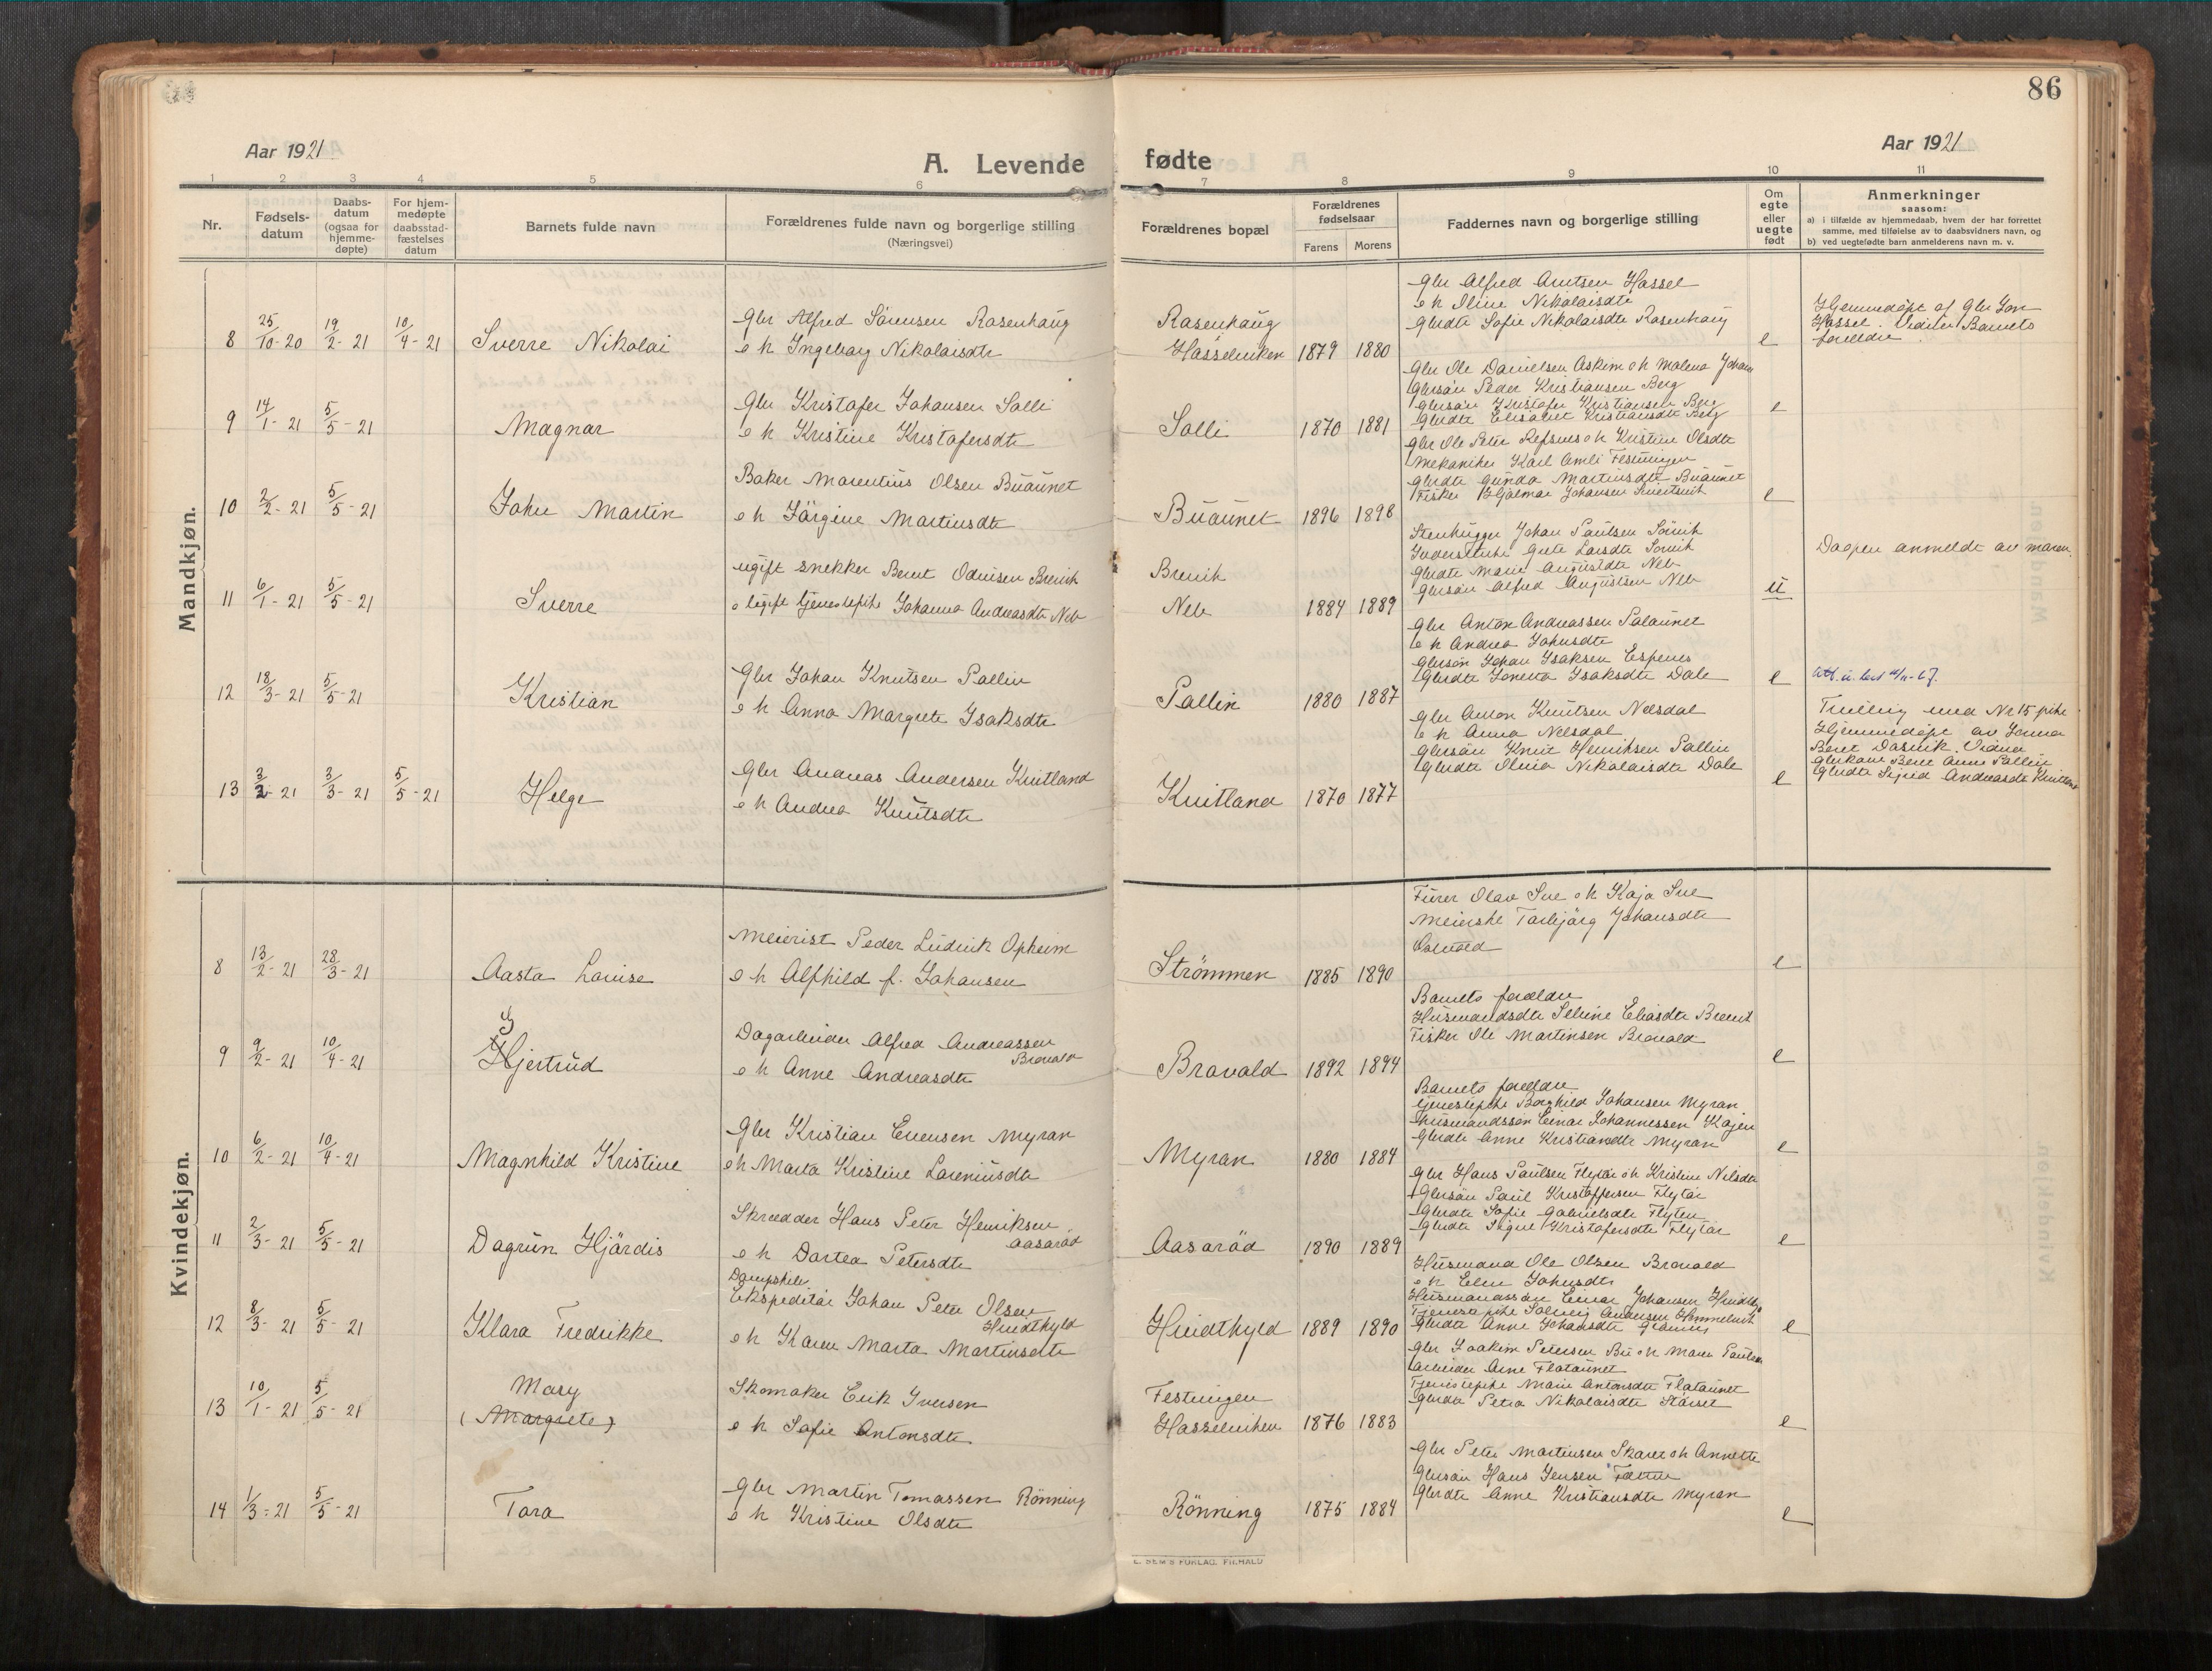 86
Aar 1921
Aar 1921
A. Levende fødte
1 2 3 4 5 6 7 8 9 10 11
Nr.
Fødsels-
datum
Daabs-
datum
(ogsaa for
hjemme-
døpte)
For hjem-
medøpte
daabsstad-
fæstelses
datum
Barnets fulde navn
Forældrenes fulde navn og borgerlige stilling
(Næringsvei)
Forældrenes bopæl
Forældrenes
fødselsaar
Farens Morens
Faddernes navn og borgerlige stilling
Om
egte
eller
uegte
født
Anmerkninger
saasom:
a) i tilfælde av hjemmedaab, hvem der har forrettet
samme, med tilføielse av to daabsvidners navn, og
b) ved uegtefødte barn anmelderens navn m. v.
Mandkjøn.
8 25/10-20 19/2-21 10/4-21 Sverre Nikolai
Gbr Alfred Sørensen Rosenhaug
o h Ingeborg Nikolaisdtr
Rosenhaug
Hasselviken 1879 1880
Gbr Alfred Arntsen Hassel
o h Oline Nikolaisdtr
Gbrdtr Sofie Nikolaisdtr Rosenhaug
e
Hjemmedøpt af Gbr Jon
Hassel. Vidner Barnets
forældre.
9 14/1-21 5/5-21 Magnar
Gbr Kristofer Johansen Solli
o h Kristine Kristofersdtr
Solli 1870 1881
Gbr Ole Danielsen Askim o h Malena Johan
Gbrsøn Peder Kristiansen Berg
Gbrsøn Kristofer Kristiansen Berg
Gbrdtr Elisabet Kristiansdtr Berg
e
10 2/2-21 5/5-21 John Martin
Baker Marentius Olsen Buaunet
o h Jørgine Martinsdtr
Buaunet 1896 1898
Gbr Ole Peter Refsnes o h Kristine Olsdtr
Mekaniker Karl Amli Festningen
Gbrdtr Gunda Martinsdtr Buaunet
Fisker Hjalmar Johansen
e
11 6/1-21 5/5-21 Sverre
ugift snekker Bernt Odinsen Brevik
o ugift tjenestepike Johanna Andreasdtr Neb
Brevik
Neb 1884 1889
Stenhugger Johan Paulsen Sørvik
Grete Larsdtr Sørvik
Gbrdtr Marie Augustdtr Neb
Gbrsøn Alfred Augustsen Neb
u
Daapen anmeldt av moren.
12 18/3-21 5/5-21 Kristian
Gbr Johan Knutsen Pallin
o h Anna Margrete Isaksdtr
Pallin 1880 1887
Gbr Anton Andreassen Salaunet
o h Andrea Johnsdtr
Gbrsøn Johan Isaksen Espenes
Gbrdtr Isaksdtr Dale
e
Att. u. best
13 3/3-21 3/3-21 5/5-21 Helge
Gbr Andreas Andersen Knitland
o h Andrea Knutsdtr
Knitland 1870 1877
Gbr Anton Knutsen Nelsdal
o h Anna Nelsdal
Gbrsøn Knut Henriksen Pallin
Gbrdtr Nikolaisdtr Dale
e
Tvilling med Nr 15 pike
Hjemmedøpt av
Beret Dasvik. Vidner
Gbrkone Beret Anna Pallin
Gbrdtr Sigrid Andreasdtr Knitland
Kvindekjøn.
8 13/2-21 28/3-21 Aasta Louise
Meierist Peder Ludvik Opheim
o h Alfhild f. Johansen
Strømmen 1885 1890
Furer Olav Sve o h Kaja Sve
Meierske Torbjørg Johansdtr
e
9 9/2-21 10/4-21 Hjertrud
G
Dagarbeider Alfred Andreassen
Brovald
o h Anne Andreasdtr
Bravald 1892 1894
Barnets forældre
Husmandsdtr Seline Eliasdtr
Fisker Ole Martinsen Brovald
e
10 6/2-21 10/4-21 Magnhild Kristine
Gbr Kristian Evensen Myran
o h Marta Kristine Lareniusdtr
Myran 1880 1884
Barnets forældre
tjenestepike Borghild Johansen Myran
husmandssøn Einar Johannessen Kojen
Gbrdtr Anne Kristiandtr Myran
e
11 2/3-21 5/5-21 Dagrun Hjørdis
Skrædder Hans Peter Henriksen
Aasarød
o h Dortea Petersdtr
Aasarød 1890 1889
Gbr Hans Paulsen Flytør o h Kristine Nilsdtr
Gbrsøn Paul Kristoffersen Flytør
Gbrdtr Sofie Gabrielsdtr Flyten
Gbrdtr Signe Kristofersdtr Flytør
e
12 8/3-21 5/5-21 Klara Fredrikke
Dampskibs
Ekspeditør Johan Peter Olsen
Hvidthyld
o h Karen Marta Martinsdtr
Hvidthyld 1889 1890
Husmand Ole Olsen Brovald
o h Elen Johnsdtr
Husmandssøn Einar Johansen
Tjenestepike Solveig Andersen
Gbrdtr Anne Johansdtr
e
13 10/1-21 5/5-21 Mary
(Margrete)
Skomaker Erik Iversen
o h Sofie Antonsdtr
Festningen
Hasselviken 1876 1883
Gbr Joakim Petersen Bu o h Maren
Arbeider Arne Flataunet
Tjenestepike Marie Antonsdtr Flataunet
Gbrdtr Petra Nikolaisdtr
e
14 1/3-21 5/5-21 Tora
Gbr Martin Tomassen Rønning
o h Kristine Olsdtr
Rønning 1875 1884
Gbr Peter Martinsen Skaret o h Annette
Gbrsøn Hans Jensen
Gbrdtr Anne Kristiansdtr Myran
e
E. SEM'S FORLAG, FR.HALD